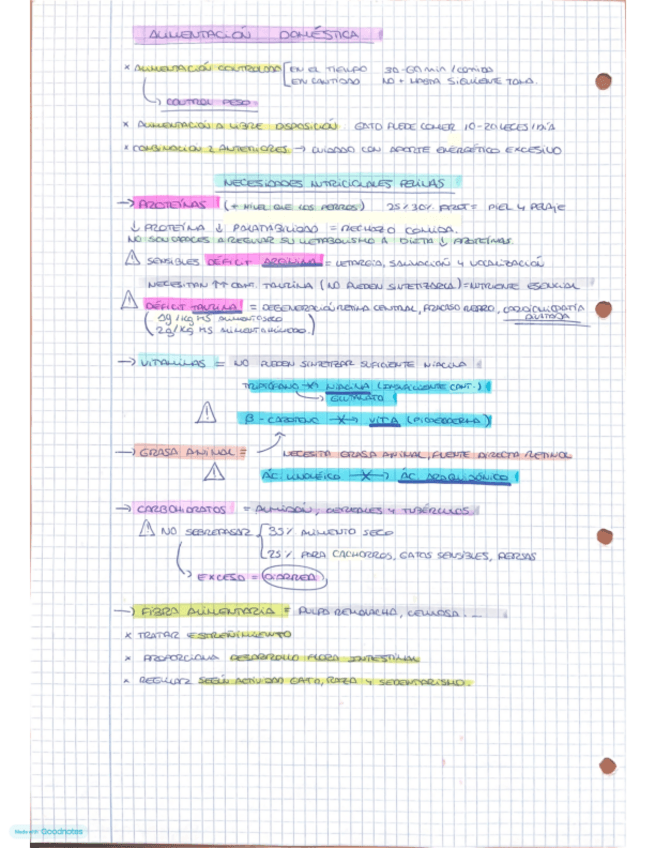 ALIMENTACIÓN DOMÉSTICA
× ALIMENTACIÓN CONTROLADA EN EL TIEMPO 30-60 min/comida
EN CANTIDAD NO + HASTA SIGUIENTE TOMA.
CONTROL PESO
× ALIMENTACIÓN A LIBRE DISPOSICIÓN: GATO PUEDE COMER 10-20 VECES/DÍA
× COMBINACIÓN 2 ANTERIORES → CUIDADO CON APORTE ENERGÉTICO EXCESIVO
NECESIDADES NUTRICIONALES FELINAS
→ PROTEÍNAS (+ NIVEL QUE LOS PERROS) 25/30% PROT = PIEL Y PELAJE
↓ PROTEÍNA ↓ PALATABILIDAD = RECHAZO COMIDA.
NO SON CAPACES A REGULAR SU METABOLISMO A DIETA ↓ PROTEÍNAS.
⚠ SENSIBLES DÉFICIT ARGININA = LETARGIA, SALIVACIÓN Y VOCALIZACIÓN
NECESITAN ↑↑ CONT. TAURINA (NO PUEDEN SINTETIZARLA) = NUTRIENTE ESENCIAL
⚠ DÉFICIT TAURINA = DEGENERACIÓN RETINA CENTRAL, FRACASO REPRO, CARDIOMIOPATÍA DILATADA
(1g/Kg MS ALIMENTO SECO
2g/Kg MS ALIMENTO HÚMEDO.)
→ VITAMINAS = NO PUEDEN SINTETIZAR SUFICIENTE NIACINA
TRIPTÓFANO → NIACINA (INSUFICIENTE CANT.)
GLUTARATO
⚠ β-CAROTENO → VIT A (PIODERMA)
→ GRASA ANIMAL = NECESITA GRASA ANIMAL, FUENTE DIRECTA RETINOL
⚠ ÁC. LINOLÉICO → ÁC ARAQUIDÓNICO
→ CARBOHIDRATOS = ALMIDÓN, CEREALES Y TUBÉRCULOS.
⚠ NO SOBREPASAR 35% ALIMENTO SECO
25% PARA CACHORROS, GATOS SENSIBLES, PERSAS
EXCESO = DIARREA
→ FIBRA ALIMENTARIA = PULPA REMOLACHA, CELULOSA ...
× TRATAR ESTREÑIMIENTO
× PROPORCIONA DESARROLLO FLORA INTESTINAL
× REGULAR SEGÚN ACTIVIDAD GATO, RAZA Y SEDENTARISMO.
Made with Goodnotes